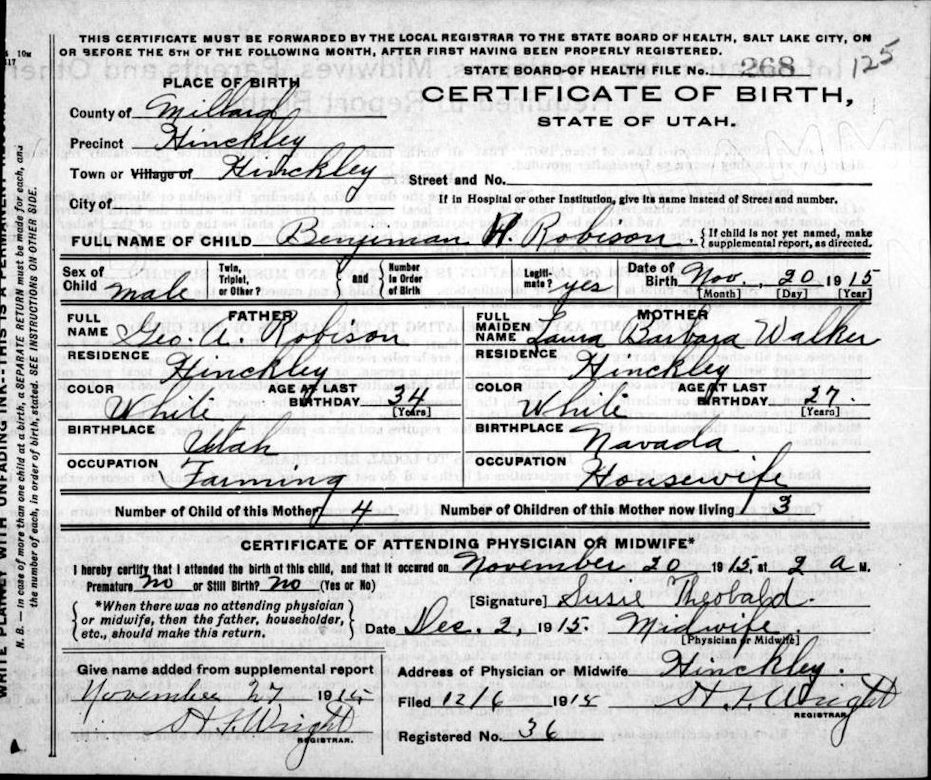 THIS CERTIFICATE MUST BE FORWARDED BY THE LOCAL REGISTRAR TO THE STATE BOARD OF HEALTH, SALT LAKE CITY, ON
OR BEFORE THE 5TH OF THE FOLLOWING MONTH, AFTER FIRST HAVING BEEN PROPERLY REGISTERED.
10M
117
125
STATE BOARD OF HEALTH FILE No. 268
CERTIFICATE OF BIRTH,
STATE OF UTAH.
PLACE OF BIRTH
County of Millard
Precinct Hinckley
Town or Village of Hinckley
Street and No.
City of
If in Hospital or other Institution, give its name instead of Street and number.
FULL NAME OF CHILD Benjiman H. Robison. {If child is not yet named, make supplemental report, as directed.
Sex of Child male Twin, Triplet, or Other? } and { Number in Order of Birth Legiti-mate? yes Date of Birth Nov. 20 1915
[Month] [Day] [Year]
FATHER
FULL NAME Geo. A. Robison
RESIDENCE Hinckley
COLOR White AGE AT LAST BIRTHDAY 34 [Years]
BIRTHPLACE Utah
OCCUPATION Farming
MOTHER
FULL MAIDEN NAME Laura Barbara Walker
RESIDENCE Hinckley
COLOR White AGE AT LAST BIRTHDAY 27. [Years]
BIRTHPLACE Navada
OCCUPATION Housewife
Number of Child of this Mother 4 Number of Children of this Mother now living 3
CERTIFICATE OF ATTENDING PHYSICIAN OR MIDWIFE*
I hereby certify that I attended the birth of this child, and that it occured on November 20 1915, at 2 a M.
Premature no or Still Birth? no (Yes or No)
*When there was no attending physician
or midwife, then the father, householder,
etc., should make this return.
[Signature] Susie Theobald.
Date Dec. 2, 1915. Midwife.
[Physician or Midwife]
Give name added from supplemental report
November 27 1915
H F Wright
REGISTRAR.
Address of Physician or Midwife Hinckley.
Filed 12/6 1915 H F Wright
REGISTRAR
Registered No. 36
WRITE PLAINLY WITH UNFADING INK--THIS IS A PERMANENT
N. B. — In case of more than one child at a birth, a SEPARATE RETURN must be made for each, and
the number of each, in order of birth, stated. SEE INSTRUCTIONS ON OTHER SIDE.